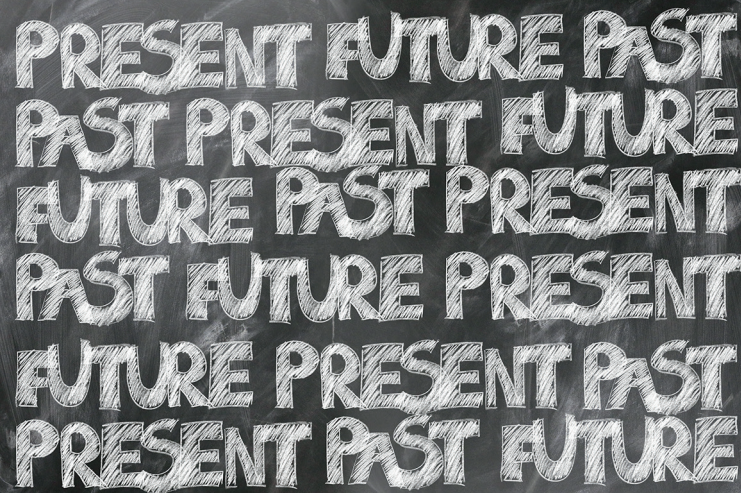 PRESENT FUTURE PAST
PAST PRESENT FUTURE
FUTURE PAST PRESENT
PAST FUTURE PRESENT
FUTURE PRESENT PAST
PRESENT PAST FUTURE